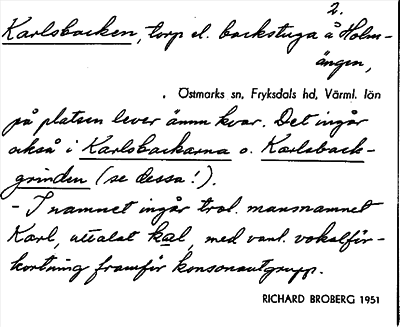 2.
Karlsbacken, torp el. backstuga å Holm-
ängen,
. Östmarks sn, Fryksdals hd, Värml. län
på platsen lever ännu kvar. Det ingår
också i Karlsbackarna o. Karlsback-
grinden (se dessa!).
- I namnet ingår trol. mansnamnet
Karl, uttalat kal, med vanl. vokalför-
kortning framför konsonantgrupp.
RICHARD BROBERG 1951